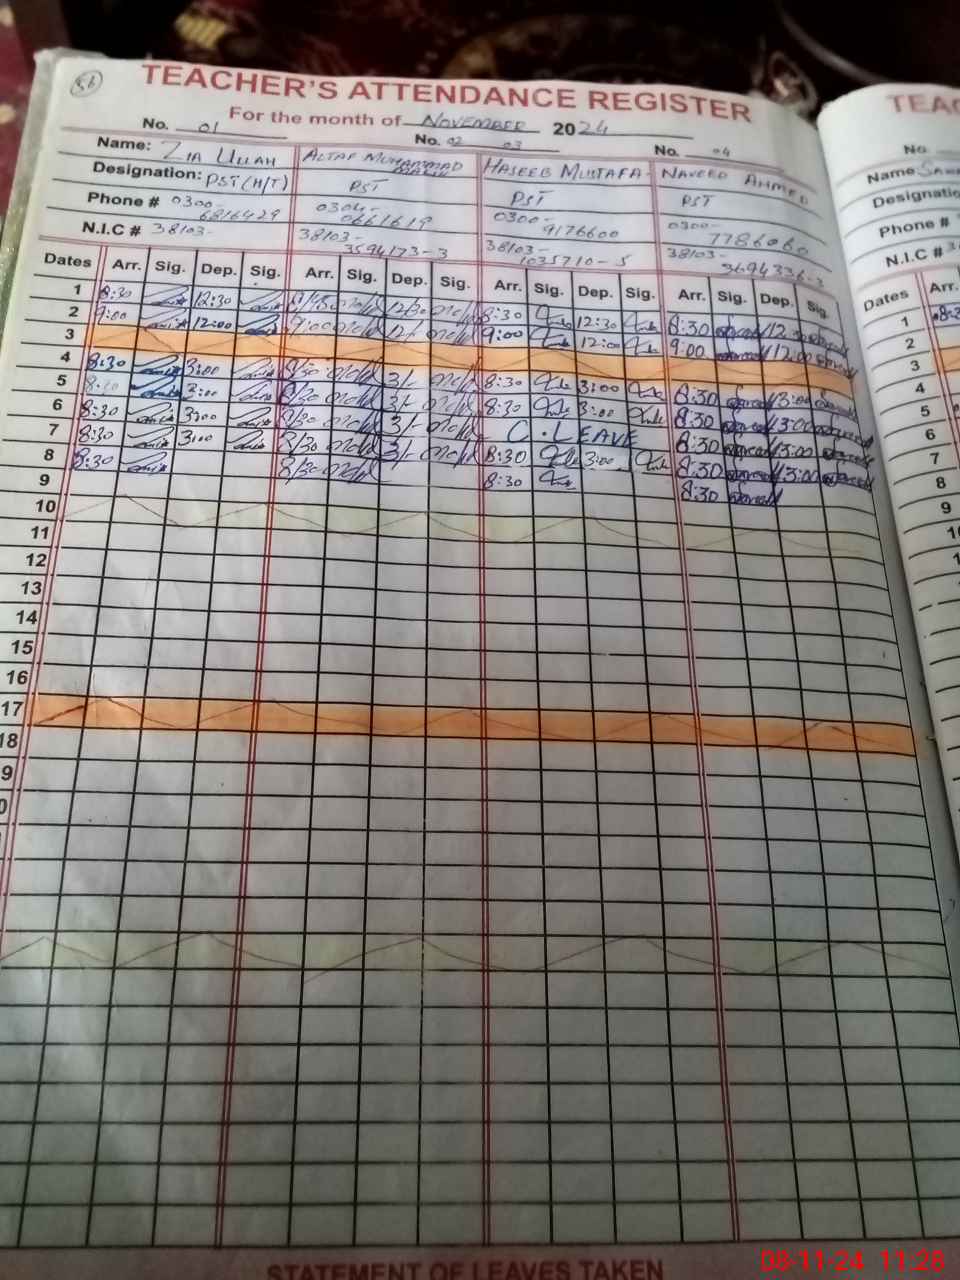 56
TEACHER'S ATTENDANCE REGISTER
For the month of NOVEMBER 2024
No. 01 No. 02 03 No. 04
Name: ZIA ULLAH ALTAF MUHAMMAD HASEEB MUSTAFA NAVEED AHMED
Designation: PST (H/T) PST PST PST
Phone # 0300-6816429 0304-0661619 0300-9176600 0300-7786060
N.I.C # 38103- 38103-3594173-3 38103-1035710-5 38103-3694336-3
Dates Arr. Sig. Dep. Sig. Arr. Sig. Dep. Sig. Arr. Sig. Dep. Sig. Arr. Sig. Dep. Sig.
1 8:30 12:30 12/30 8:30 12:30 8:30 12:30
2 9:00 12:00 9:00 12/- 9:00 12:00 9:00 12:00
3
4 8:30 3:00 8/30 3/- 8:30 3:00 8:30 3:00
5 8:30 3:00 8/30 3/- 8:30 3:00 8:30 3:00
6 8:30 3:00 8/30 3/- C. LEAVE 8:30 3:00
7 8:30 3:00 8/30 3/- 8:30 3:00 8:30 3:00
8 8:30 8/30 8:30 8:30
9
10
11
12
13
14
15
16
17
18
9
0
STATEMENT OF LEAVES TAKEN
TEAC
No.
Name
Designatio
Phone #
N.I.C # 3
Dates Arr.
1
2
3
4
5
6
7
8
9
10
1
08-11-24 11:28